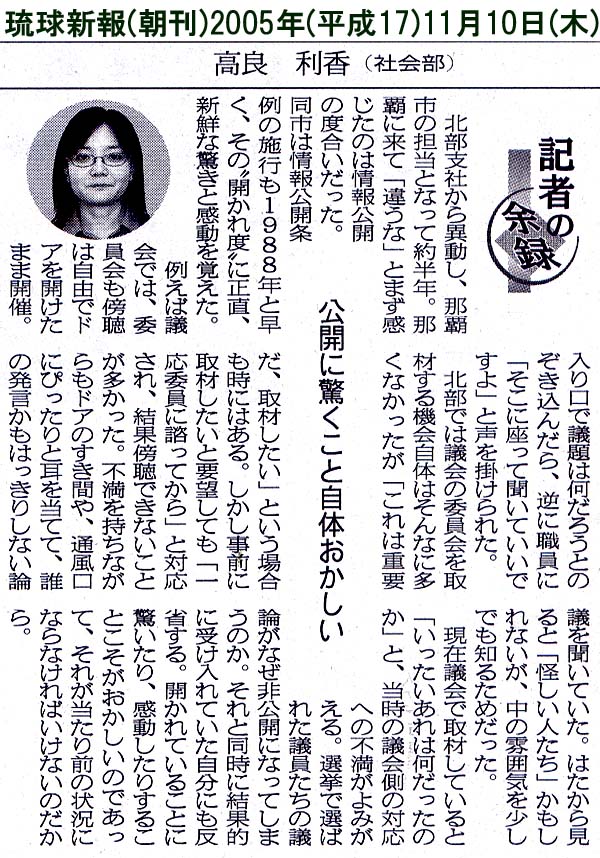 琉球新報(朝刊)2005年(平成17)11月10日(木)
高良 利香(社会部)
記者の
余録
公開に驚くこと自体おかしい
北部支社から異動し、那覇
市の担当となって約半年。那
覇に来て「違うな」とまず感
じたのは情報公開
の度合いだった。
同市は情報公開条
例の施行も1988年と早
く、その〝開かれ度〟に正直、
新鮮な驚きと感動を覚えた。
例えば議
会では、委
員会も傍聴
は自由でド
アを開けた
まま開催。
入り口で議題は何だろうとの
ぞき込んだら、逆に職員に
「そこに座って聞いていいで
すよ」と声を掛けられた。
北部では議会の委員会を取
材する機会自体はそんなに多
くなかったが「これは重要
だ、取材したい」という場合
も時にはある。しかし事前に
取材したいと要望しても「一
応委員に諮ってから」と対応
され、結果傍聴できないこと
が多かった。不満を持ちなが
らもドアのすき間や、通風口
にぴったりと耳を当てて、誰
の発言かもはっきりしない論
議を聞いていた。はたから見
ると「怪しい人たち」かもし
れないが、中の雰囲気を少し
でも知るためだった。
現在議会で取材していると
「いったいあれは何だったの
か」と、当時の議会側の対応
への不満がよみが
える。選挙で選ば
れた議員たちの議
論がなぜ非公開になってしま
うのか。それと同時に結果的
に受け入れていた自分にも反
省する。開かれていることに
驚いたり、感動したりするこ
とこそがおかしいのであっ
て、それが当たり前の状況に
ならなければいけないのだか
ら。